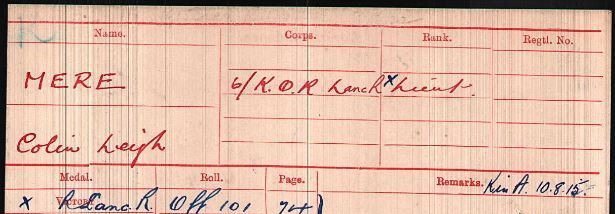 Name. Corps. Rank. Regtl. No.
MERE 6/K.O.R Lanc R x Lieut.
Colin Leigh
Medal. Roll. Page. Remarks. Kin A. 10.8.15.
x Victory R Lanc. R. Off 101 74)